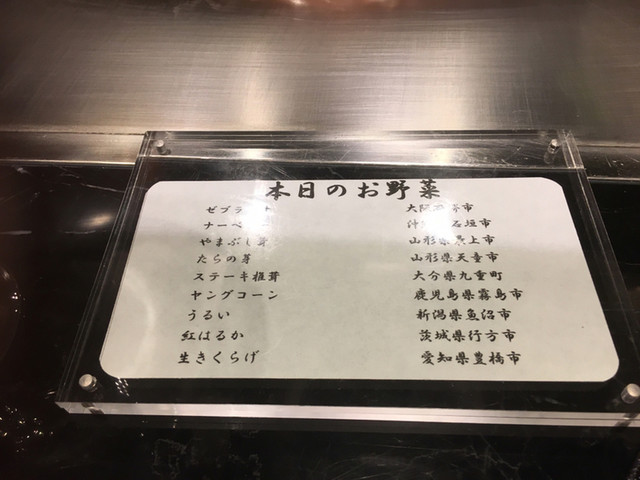 本日のお野菜
ゼブラ 大阪 市
ナーベ 沖 石垣市
やまぶし茸 山形県 上市
たらの芽 山形県天童市
ステーキ椎茸 大分県九重町
ヤングコーン 鹿児島県霧島市
うるい 新潟県魚沼市
紅はるか 茨城県行方市
生きくらげ 愛知県豊橋市